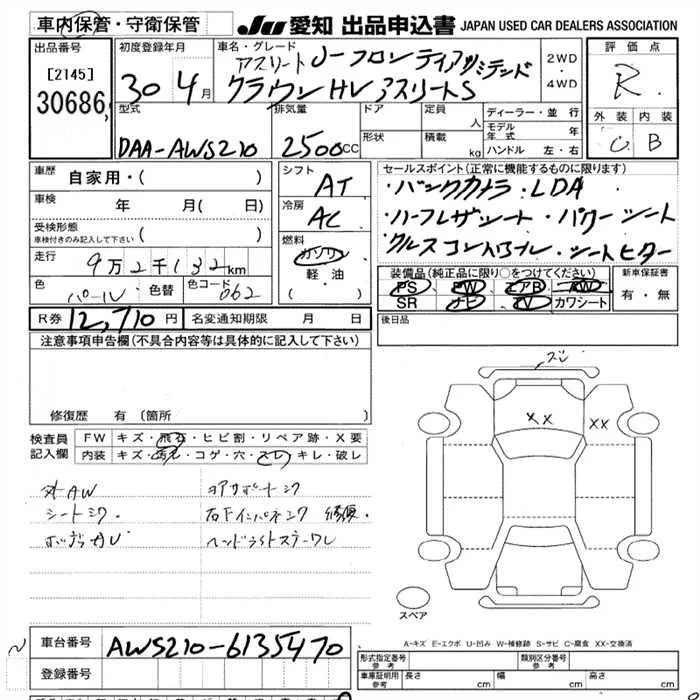 車内保管・守衛保管
JU 愛知 出品申込書 JAPAN USED CAR DEALERS ASSOCIATION
出品番号
[2145]
30686
初度登録年月
30 年 4月
車名・グレード
アスリート J-フロンティアリミテッド
クラウンHV アスリートS
2WD
・
4WD
評価点
R
外装 内装
C B
型式
DAA-AWS210
排気量
2500cc
ドア
形状
定員 人
積載 kg
ディーラー・並行
モデル年式 年
ハンドル 左・右
車歴
自家用・( )
車検 年 月( 日)
受検形態
車検付きのみ記入して下さい ( )
走行 9万2千132km
色 パール 色替 色コード 062
シフト
AT
冷房
AC
燃料
ガソリン
軽・油
( )
セールスポイント(正常に機能するものに限ります)
・バックカメラ・LDA
・ハーフレザーシート・パワーシート
・クルーズコントロール・シートヒーター
装備品(純正品に限り○をつけてください) 新車保証書
PS PW エアB AW
SR ナビ TV カワシート
有・無
R券 12,710円 名変通知期限 月 日
後日品
注意事項申告欄(不具合内容等は具体的に記入して下さい)
修復歴 有(箇所 )
検査員
記入欄
FW キズ・飛石・ヒビ割・リペア跡・X要
内装 キズ・汚れ・コゲ・穴・スレ・キレ・破レ
外AW
シートシワ
スレ
XX
XX
スペア
A-キズ E-エクボ U-凹み W-補修跡 S-サビ C-腐食 XX-交換済
車台番号 AWS210-6135470
登録番号
形式指定番号 参考
類別区分番号 参考
車庫証明用 参考 長さ cm 幅 cm 高さ cm